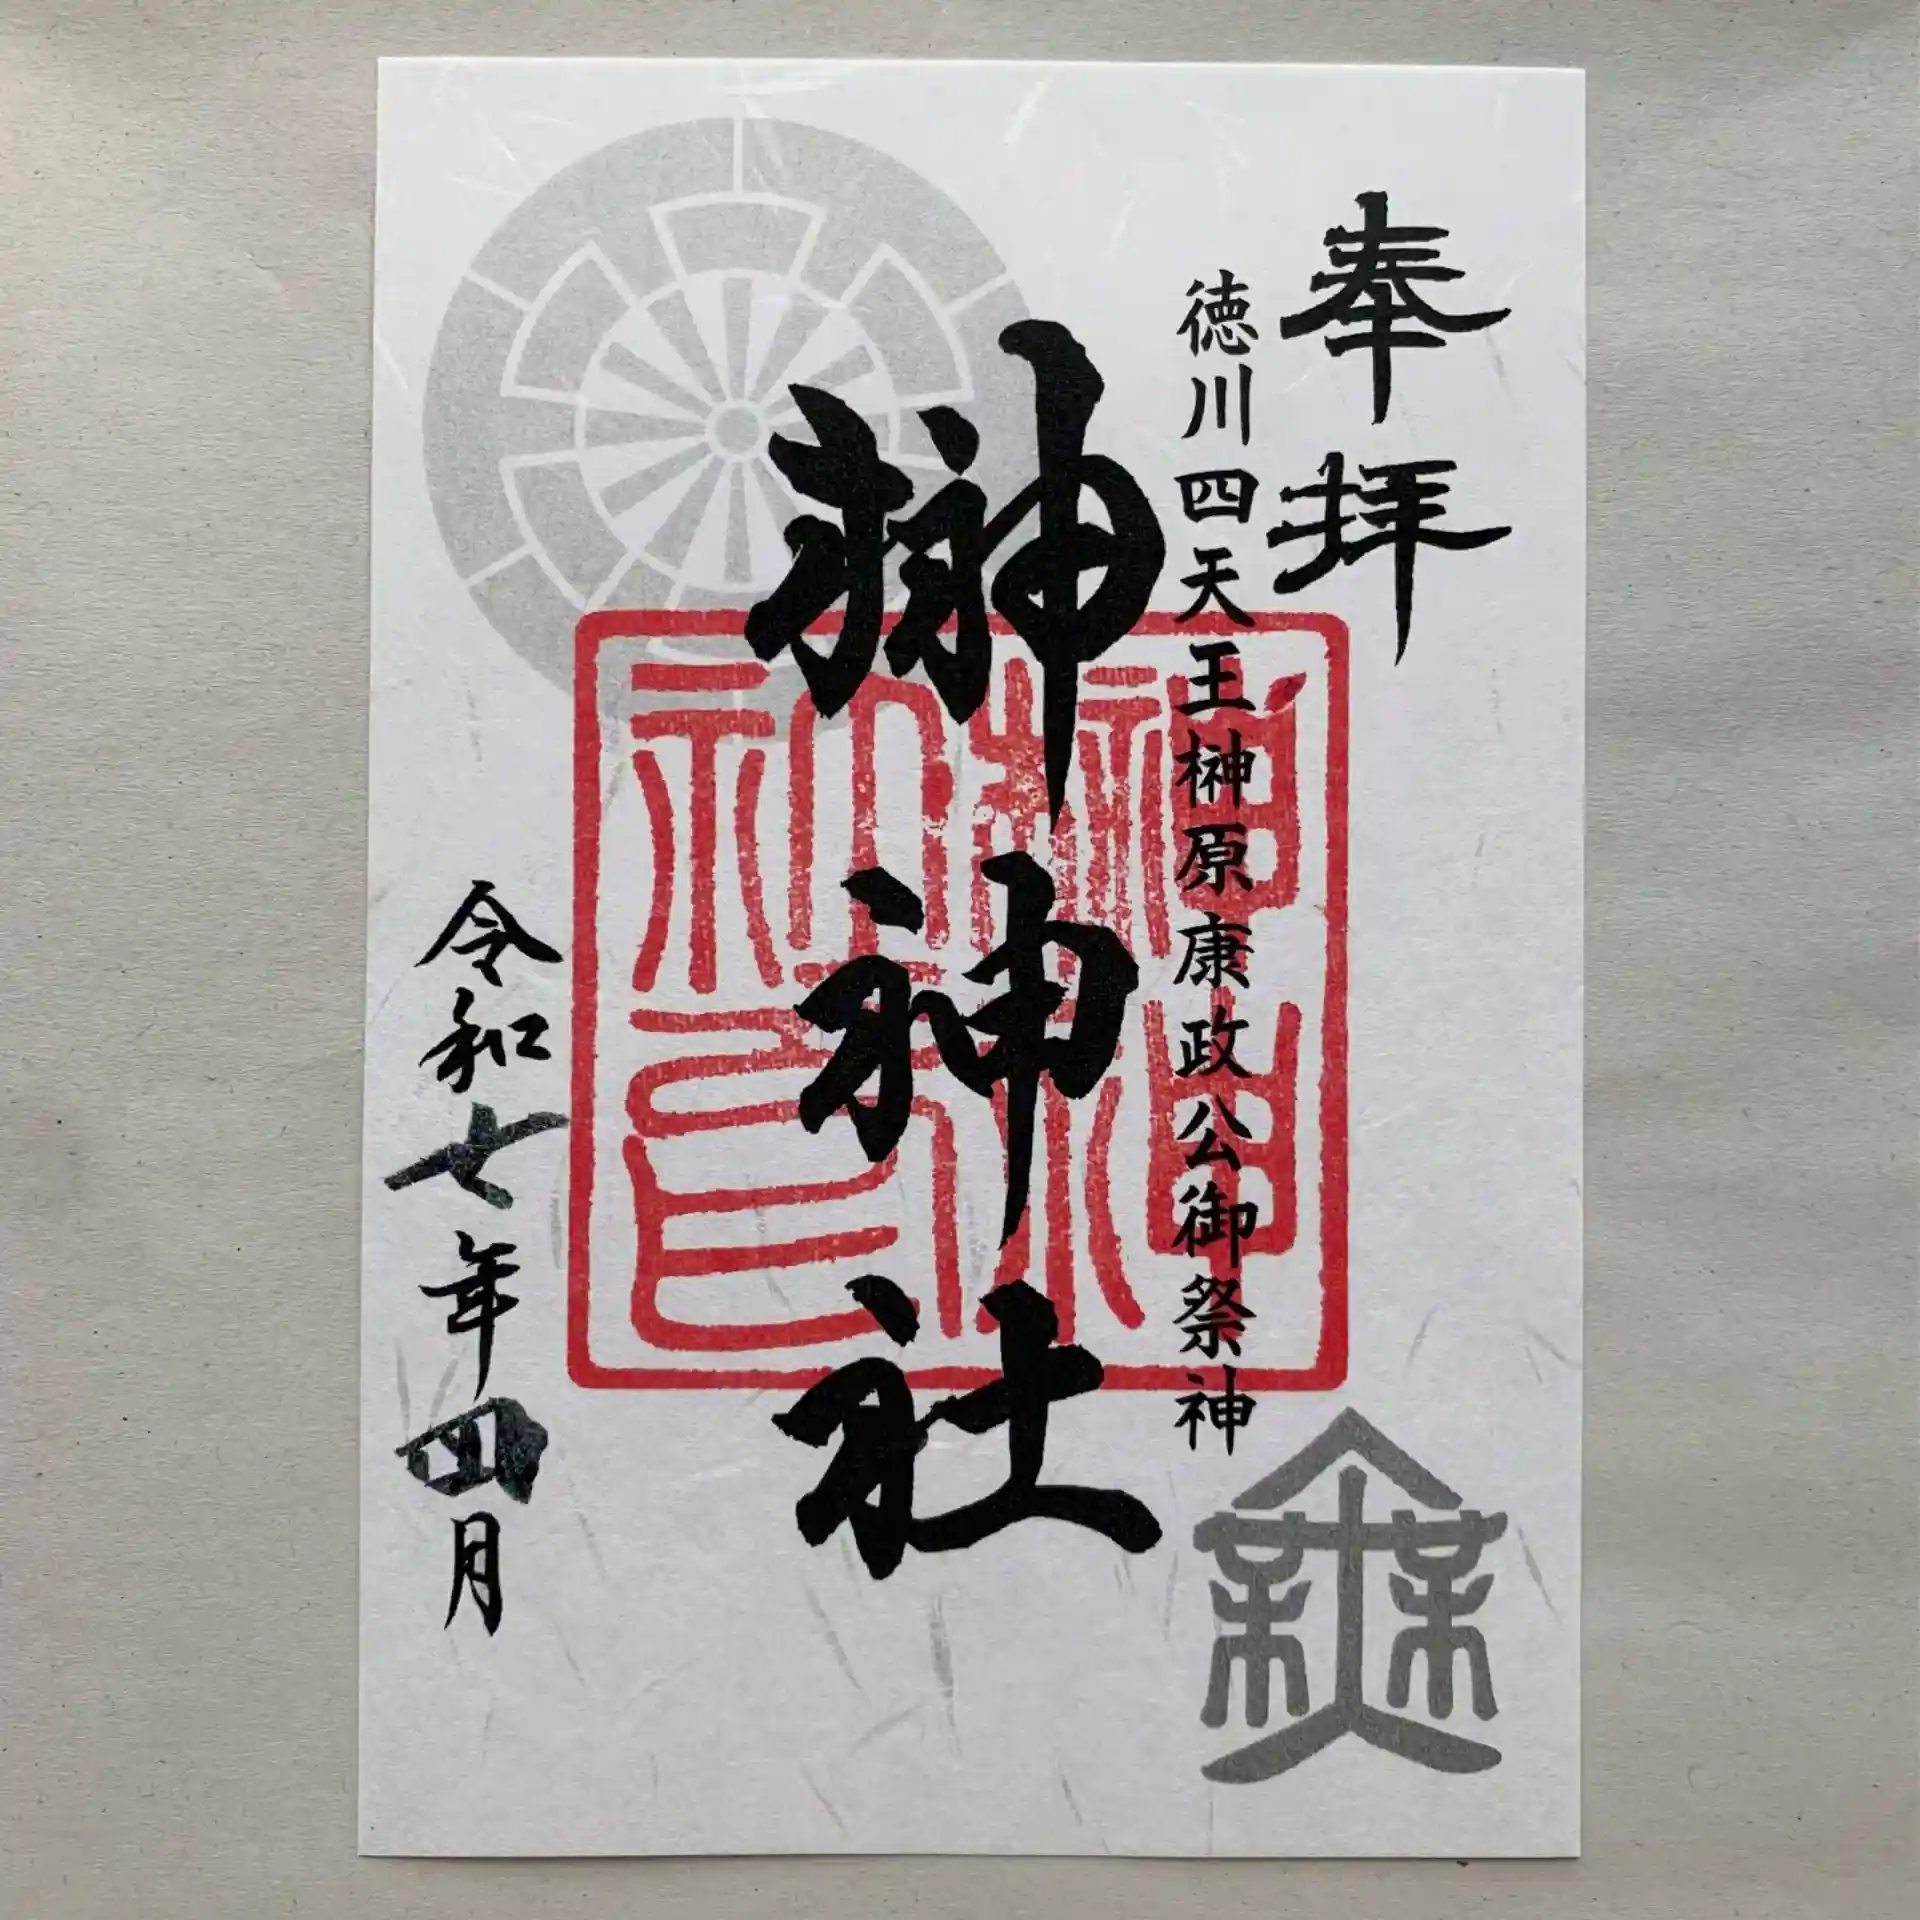 奉拝
徳川四天王榊原康政公御祭神
榊神社
榊神社印
令和七年四月